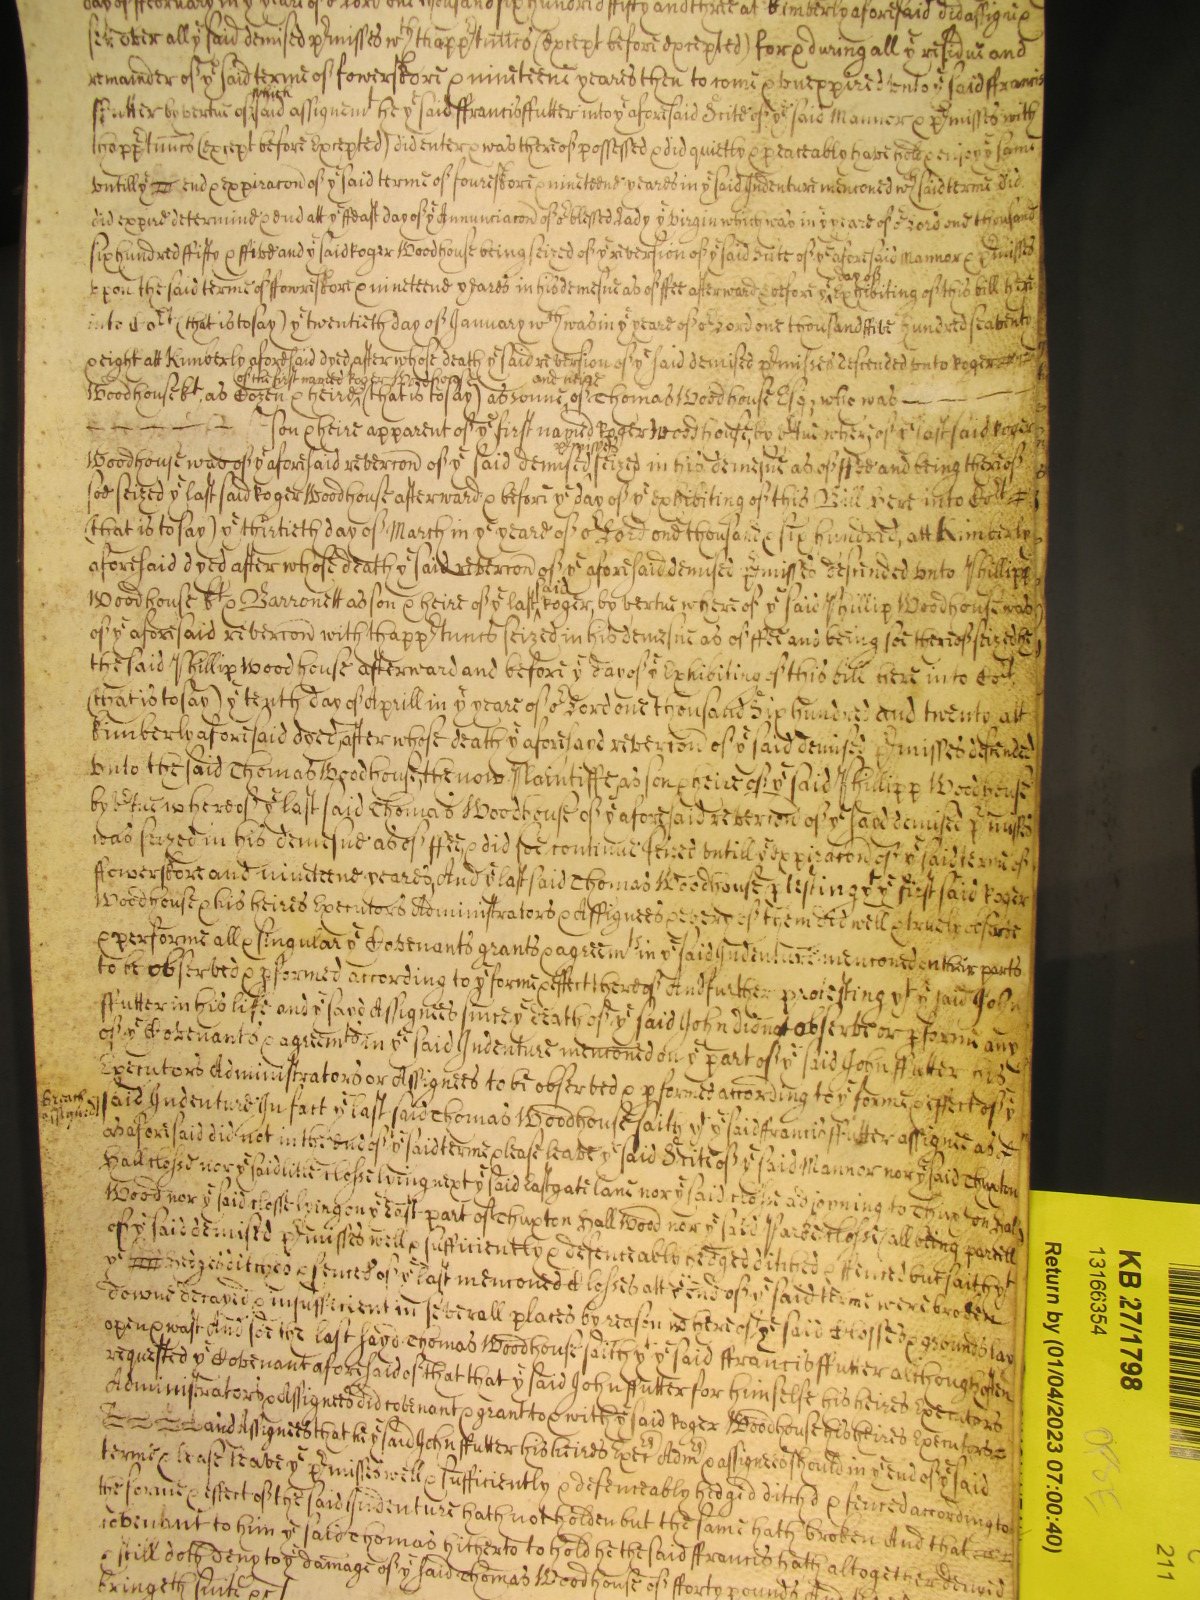 day of ffebruary in yͤ yeare of oͬ Lord one thousand six hundred fifty and three at Kimberly aforesaid did assigne
set over all yͤ said demised pͬmisses wᵗʰ thappͬtnncs (except before excepted) for & during all yͤ residue and
remainder of yͤ said terme of fowerskore & nineteene yeares then to come & unexpired vnto yͤ said ffrancis
ffutter by vertue of which said assignemᵗ he yͤ said ffrancis ffutter into yͤ aforesaid Scite of yͤ said Mannor & pͬmisses with
thappͬtnncs (except before Excepted) did enter & was thereof possessed & did quietly & peaceably have hold & enjoy yͤ same
vntill yͤ end & expiracon of yͤ said terme of fourskore & nineteene yeares in yͤ said Indenture menconed wᶜʰ said terme did
did expire determine & end att yͤ ffeast day of yͤ Annunciacon of oͬ blessed Lady yͤ virgin which was in yͤ yeare of oͬ Lord one thousand
six hundred fifty & ffive and yͤ said Roger Woodhouse being seized of yͤ reversion of yͤ said Scite of yͤ aforesaid Mannor & pͬmisses
vpon the said terme of ffowrskore & nineteene yeares in his demesne as of ffee afterward & before yͤ day of Exhibiting of this bill here
into Coͬᵗ (that is to say) yͤ twentieth day of January wᶜʰ was in yͤ yeare of oͬ Lord one thousand ffive hundred seaventy
& eight att Kimberly aforesaid dyed, after whose death yͤ said reversion of yͤ said demised pͬmisses descended vnto Roger
Woodhouse Kᵗ, as Cozen & heire of the first named Roger Woodhouse (that is to say) as sonne and heire of Thomas Woodhouse Esqͬ, who was
son & heire apparent of yͤ first named Roger Woodhouse, by vͬtue whereof yͤ last said Roger
Woodhouse was of yͤ aforesaid revercon of yͤ said demised pͬmisses seized in his demesne as of ffee and being thereof
soe seized yͤ last said Roger Woodhouse afterward & before yͤ day of yͤ exhibiting of this Bill here into Coͬᵗ
(that is to say) yͤ thirtieth day of March in yͤ yeare of oͬ Lord one thousand & six hundred, att Kimberly
aforesaid dyed after whose death yͤ said revercon of yͤ aforesaid demised pͬmisses descended vnto Phillipp
Woodhouse Kᵗ & Barronett as son & heire of yͤ last said Roger, by vertue whereof yͤ said Phillip Woodhouse was
of yͤ aforesaid revercon with thappͬtnncs seized in his demesne as of ffee and being soe thereof seized he
the said Phillip Woodhouse afterward and before yͤ day of yͤ Exhibiting of this bill here into Coͬᵗ
(that is to say) yͤ tenth day of Aprill in yͤ yeare of oͬ Lord one thousand Six hundred and twenty att
Kimberly aforesaid dyed, after whose death yͤ aforesayd revercon of yͤ said demised pͬmisses desended
vnto the said Thomas Woodhouse, the now Plaintiffe, as son & heire of yͤ said Phillipp Woodhouse
by vͬtue whereof yͤ last said Thomas Woodhouse of yͤ aforesaid revercon of yͤ sayd demised pͬmisses
was seized in his demesne as of ffee, & did soe continue seized vntill yͤ expiracon of yͤ said terme of
ffowerskore and nineteene yeares, And yͤ last said Thomas Woodhouse ptesting yᵗ yͤ first said Roger
Woodhouse & his heires Executors Administrators & Assignees & every of them did well & truely observe
& performe all & singular yͤ Covenants grants & agreemᵗˢ in yͤ said Indenture menconed on their parts
to be observed & pformed according to yͤ forme & effect thereof And further protesting yᵗ yͤ said John
ffutter in his life and yͤ sayd Assignees since yͤ death of yͤ said John did not observe or pforme any
of yͤ Covenants & agreemᵗˢ in yͤ said Indenture menconed on yͤ part of yͤ said John ffutter his
Executors Administrators or Assignees to be observed & pformed according to yͤ forme & effect of yͤ
Breach assigned
said Indenture In fact yͤ last said Thomas Woodhouse saith yᵗ yͤ said ffrancis ffutter assignee as
aforesaid did not in the end of yͤ said terme please leave yͤ said Scite of yͤ said Mannor nor yͤ said Thuxton
Hall closse nor yͤ said little closse lying next yͤ said Eastgate lane nor yͤ said closse adjoyning to Thuxton Hall
Wood nor yͤ said closse lying on yͤ East part of Thuxton Hall Wood nor yͤ said Parke closse (all being parcell
of yͤ said demised pͬmisses well & sufficiently & defenceably hedged ditched & ffenced but saith yᵗ
yͤ hedges ditches & fences of yͤ last menconed Closses att yͤ end of yͤ said terme were broken
downe decayed & insufficient in severall places by reason whereof yͤ said Closses & grounds lay
open & wast And soe the last sayd Thomas Woodhouse saith yᵗ yͤ said ffrancis ffutter although often
requested yͤ Covenant aforesaid of that that yͤ said John ffutter for himselfe his heires Executors
Administrators & Assignees did covenant & grant to & with yͤ said Roger Woodhouse his heires Executors
and Assignees that he yͤ said John ffutter his heires Execͬˢ Admͬˢ & assignees should in yͤ end of yͤ said
terme & lease leave yͤ pͬmisses well & sufficiently & defenceably hedged ditchd & fenced according to
the forme & effect of the said Indenture hath not holden but the same hath broken And that
covenant to him yͤ said Thomas hitherto to hold he the said ffrancis hath altogether denied
& still doth deny to yͤ damage of yͤ said Thomas Woodhouse of fforty pounds And
bringeth suite &c
KB 27/1798
13166354
Return by (01/04/2023 07:00:40)
211